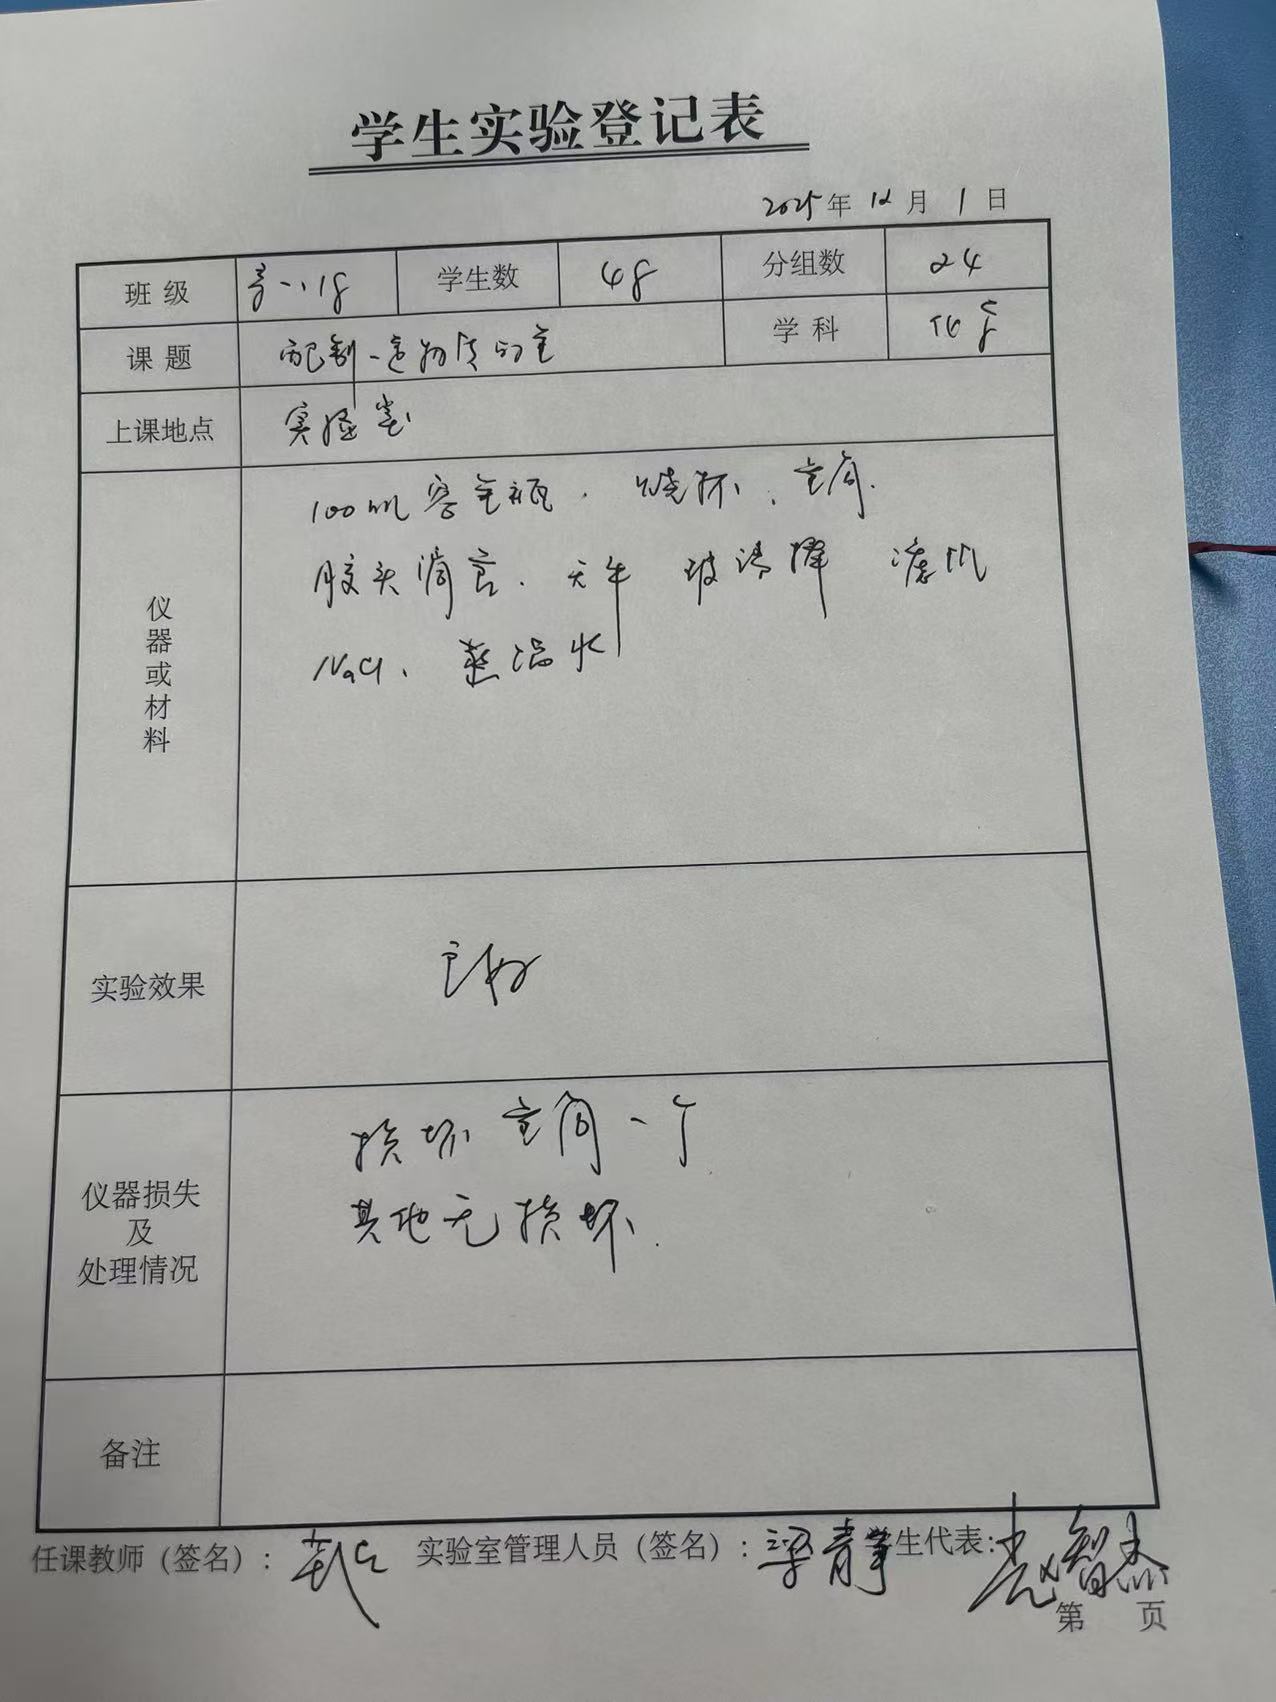 学生实验登记表
2025年 12月 1日
班级 高一18 学生数 48 分组数 24
课题 配制一定物质的量 学科 化学
上课地点 实验室
仪器或材料
100ml容量瓶、烧杯、量筒、
胶头滴管、天平 玻璃棒 滤纸
NaCl、蒸馏水
实验效果 良好
仪器损失
及
处理情况
损坏量筒一个
其他无损坏.
备注
任课教师（签名）： 实验室管理人员（签名）：梁青 学生代表: 智杰
第 页